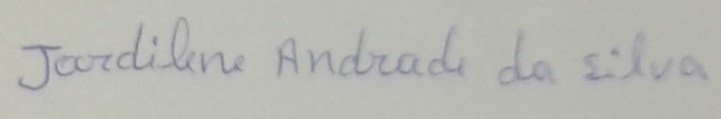 Jardilene Andrade da silva